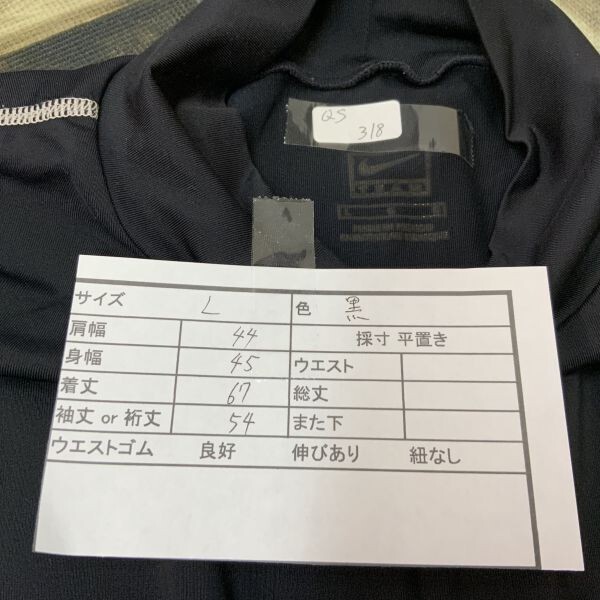 QS
318
サイズ L 色 黒
肩幅 44 採寸 平置き
身幅 45 ウエスト
着丈 67 総丈
袖丈 or 裄丈 54 また下
ウエストゴム 良好 伸びあり 紐なし